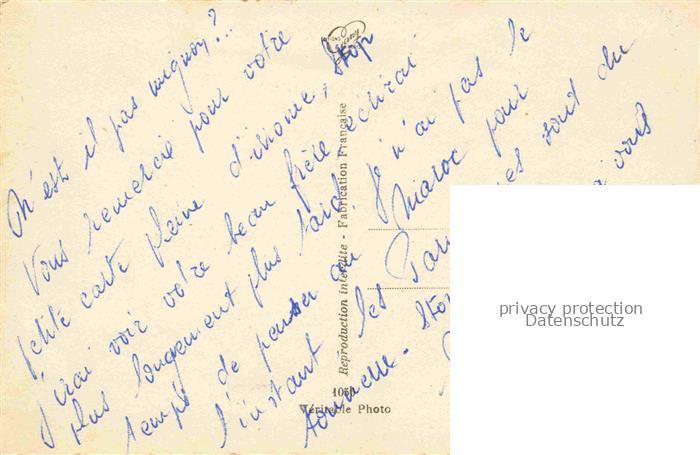 N'est il pas mignon?...
Vous remercie pour votre
petite carte pleine d'ironie, stop
j'irai voir votre beau frère écrirai
plus longuement plus tard. Je n'ai pas le
temps de penser au Maroc pour
l'instant les sont du
tonnelle. Stop à vous
Reproduction interdite - Fabrication Française
Véritable Photo
privacy protection
Datenschutz